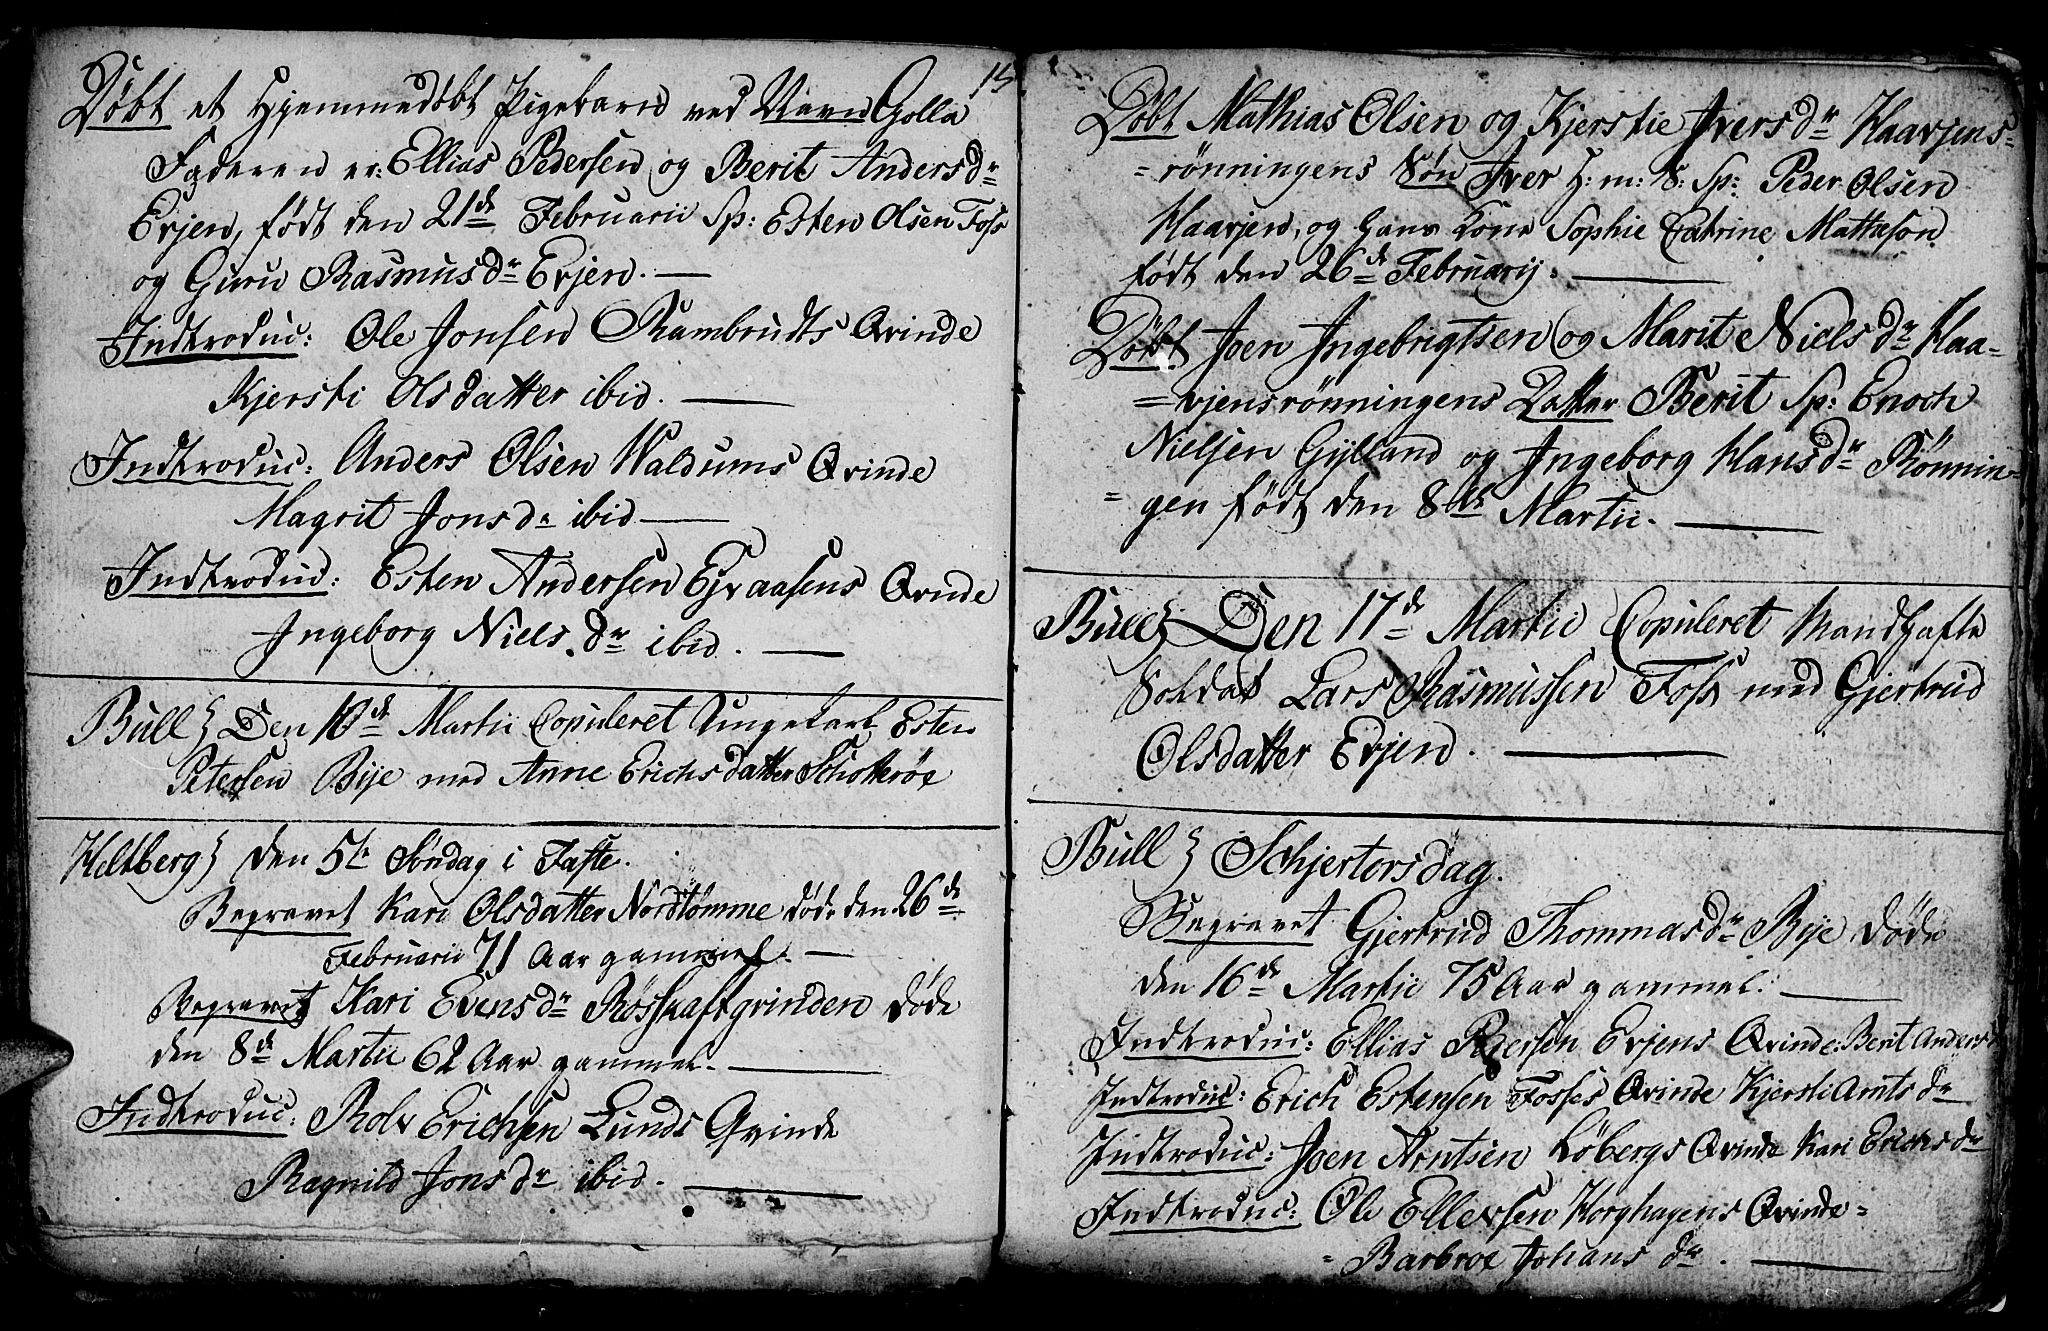 15
Döbt et Hjemmedöbt Pigebarn ved Navn Golla
Faderen er: Ellias Pedersen og Berit Andersdr
Evjen, födt den 21de Februarii Sp: Esten Olsen Foss
og Guru Rasmusdr Evjen. —
Indtroduc: Ole Jonsen Rambrudts Qvinde
Kjersti Olsdatter ibid. —
Indtroduc: Anders Olsen Waldums Qvinde
Magrit Jonsdr ibid —
Indtroduc: Esten Andersen Ejvaasens Qvnde
Ingeborg Nielsdr ibid. —
Bull} Den 10de Martii Copuleret Ungekarl Esten
Petersen Bye med Anne Erichsdatter Schotteröe
Heltberg} den 5te Söndag i Faste.
Begravet Kari Olsdatter Nordtömme död den 26de
Februarii 71 Aar gammel. —
Begravet Kari Evensdr Röskaftgrinden döde
den 8de Martii 62 Aar gammel. —
Indtroduc: Rolv Erichsen Lunds Qvinde
Ragnild Jonsdr ibid. —
Döbt Mathias Olsen og Kjerstie Iversdr Haavjens=
=rönningens Sön Iver H: m: S: Sp: Peder Olsen
Haavjen, og hans Kone Sophie Catrine Matheson
födt den 26de Februarij. —
Döbt Joen Ingebrigtsen og Marit Nielsdr Haa=
=vjensrönningens Datter Berit Sp: Enoch
Nielsen Gylland og Ingeborg Hansdr Rönnin=
=gen födt den 8de Martii. —
Bull} Den 17de Martii Copuleret Mandhafte
Soldat Lars Rasmussen Foss med Gjertrud
Olsdatter Evjen. —
Bull} Schjertorsdag.
Begravet Gjertrud Thommasdr Bye döde
den 16de Martii 75 Aar gammel. —
Indtroduc: Ellias Pedersen Evjens Qvinde: Berit Anders
Indtroduc: Erich Estensen Fosses Qvinde Kjersti Arntsdr
Indtroduc: Joen Arntsen Löbergs Qvinde Kari Erichsdr
Indtroduc: Ole Ellevsen Horghagens Qvinde=
=Barbroe Johansdr. —